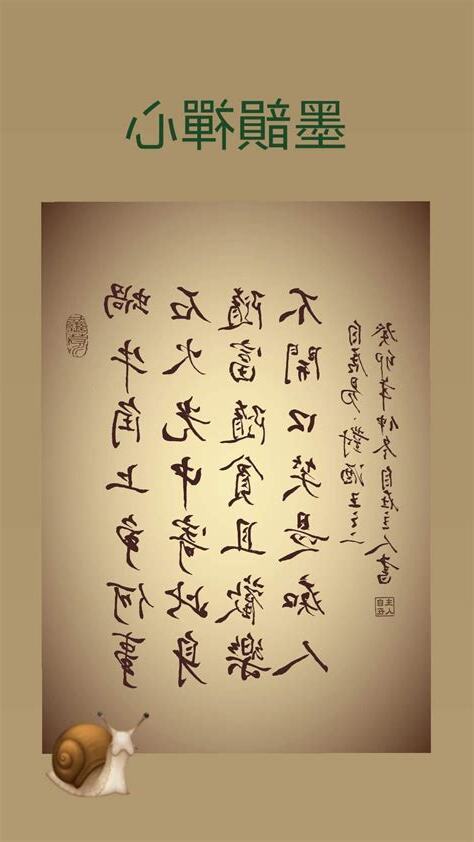 墨韻禪心
蝸牛角上爭何事
石火光中寄此身
隨富隨貧且歡樂
不開口笑是痴人
白居易·對酒五之二
癸卯年仲冬自在主人書
自在主人